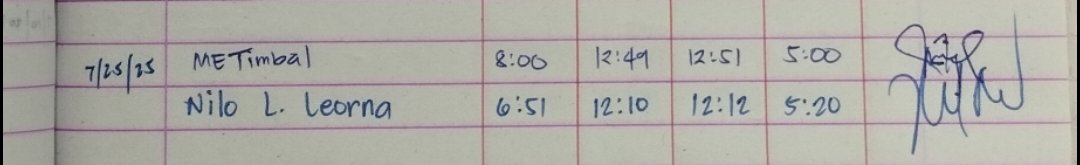 7/25/25 METimbal 8:00 12:49 12:51 5:00
Nilo L. Leorna 6:51 12:10 12:12 5:20